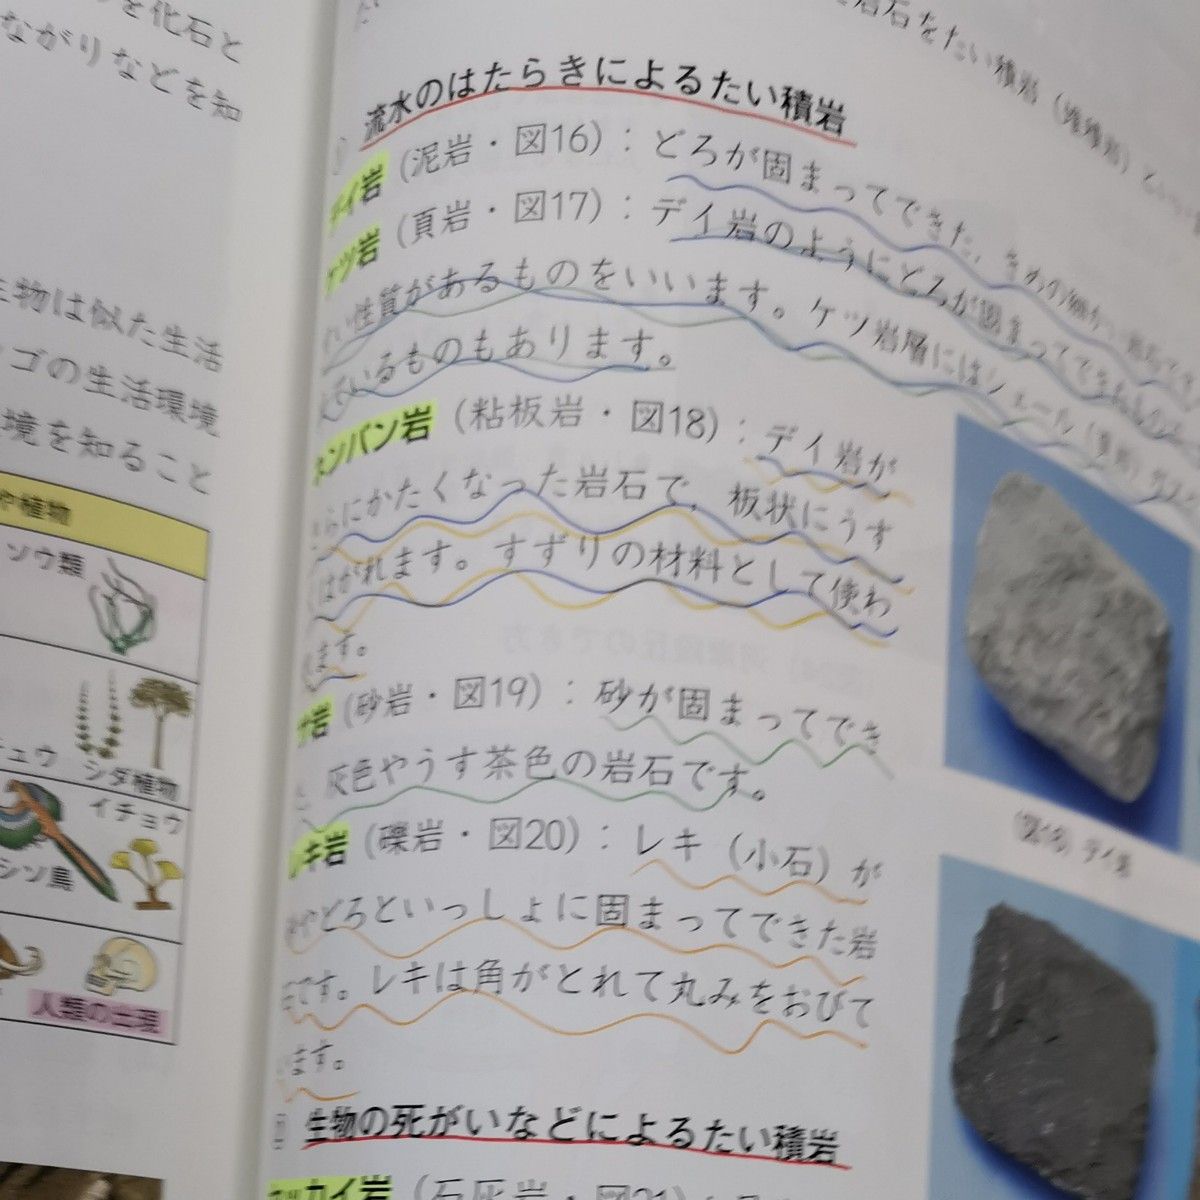 を化石と
ながりなどを知
生物は似た生活
ゴの生活環境
境を知ること
や植物
ソウ類
チュウ
シダ植物
イチョウ
シソ鳥
人類の出現
岩石をたい積岩(堆積岩)とい
流水のはたらきによるたい積岩
デイ岩(泥岩・図16):どろが固まってできた、きめの細かい岩石です
ケツ岩(頁岩・図17):デイ岩のようにどろが固まってできたもの
い性質があるものをいいます。ケツ岩層にはシェール(頁岩)ガス
ているものもあります。
ネンバン岩(粘板岩・図18):デイ岩が
らにかたくなった岩石で、板状にうす
はがれます。すずりの材料として使わ
ます。
サ岩(砂岩・図19):砂が固まってでき
灰色やうす茶色の岩石です。
レキ岩(礫岩・図20):レキ(小石)が
やどろといっしょに固まってできた岩
です。レキは角がとれて丸みをおびて
います。
生物の死がいなどによるたい積岩
セッカイ岩(石灰岩・図21):
(図16)デイ岩